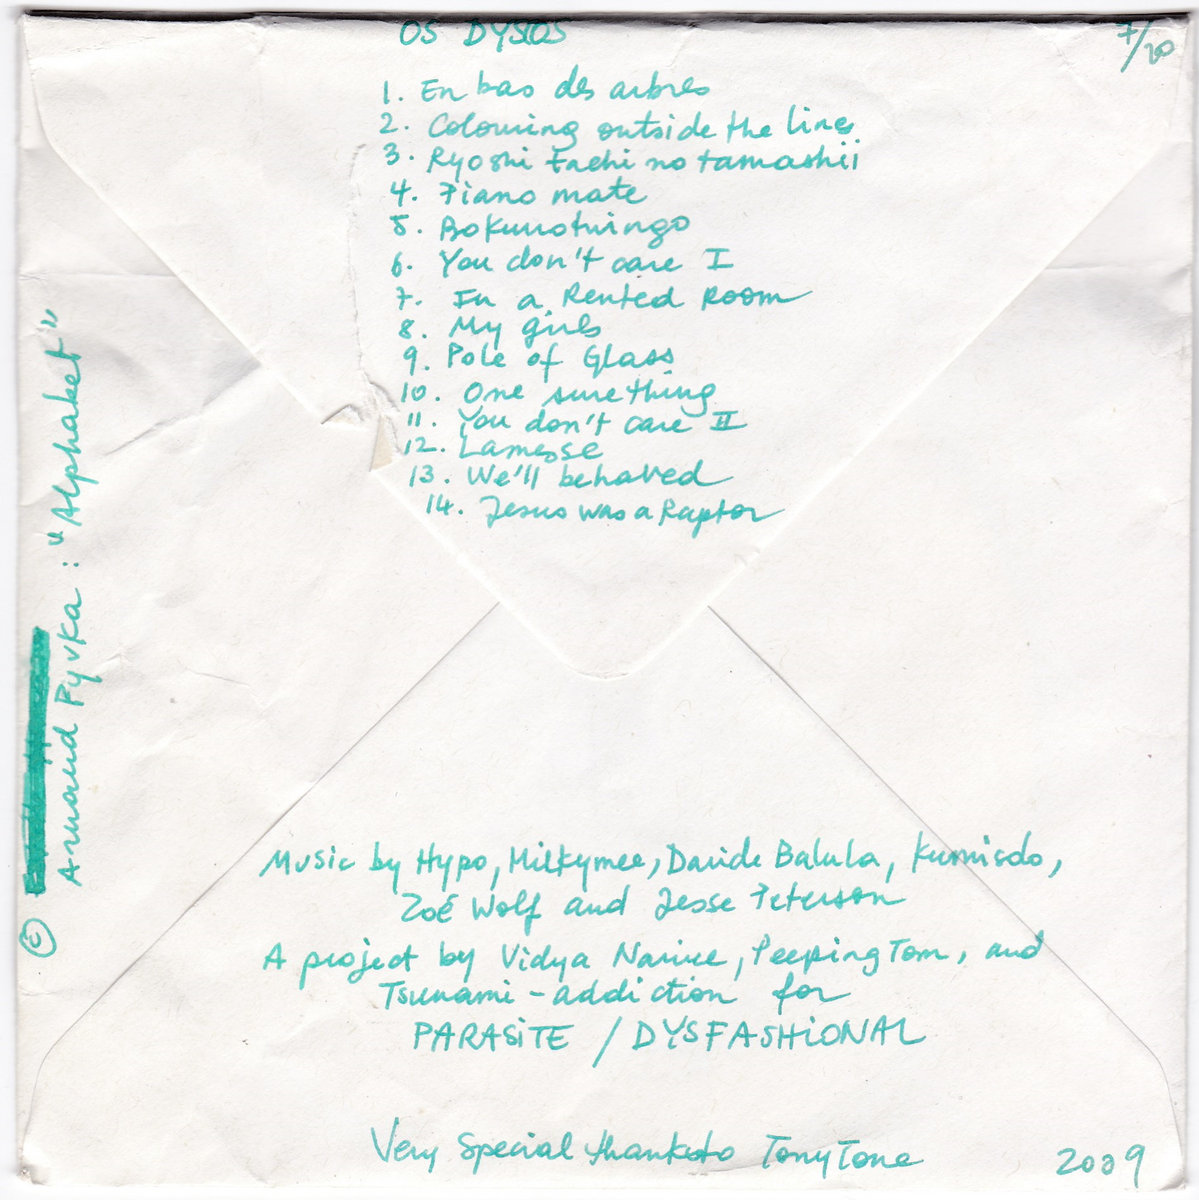 OS DYSIOS
7/20
1. En bas des arbres
2. Colouring outside the lines
3. Ryoshi Tachi no tamashii
4. Piano mate
5. Bokunotwingo
6. You don't care I
7. In a Rented Room
8. My girls
9. Pole of Glass
10. One sure thing
11. You don't care II
12. Lamesse
13. We'll behaved
14. Jesus was a Raptor
© Arnaud Pyvka : "Alphabet"
Music by Hypo, Milkymee, Davide Balula, Kumisolo,
Zoé Wolf and Jesse Peterson
A project by Vidya Narine, Peeping Tom, and
Tsunami-addiction for
PARASiTE / DYSFASHiONAL
Very Special thanks to Tony Tone
2009